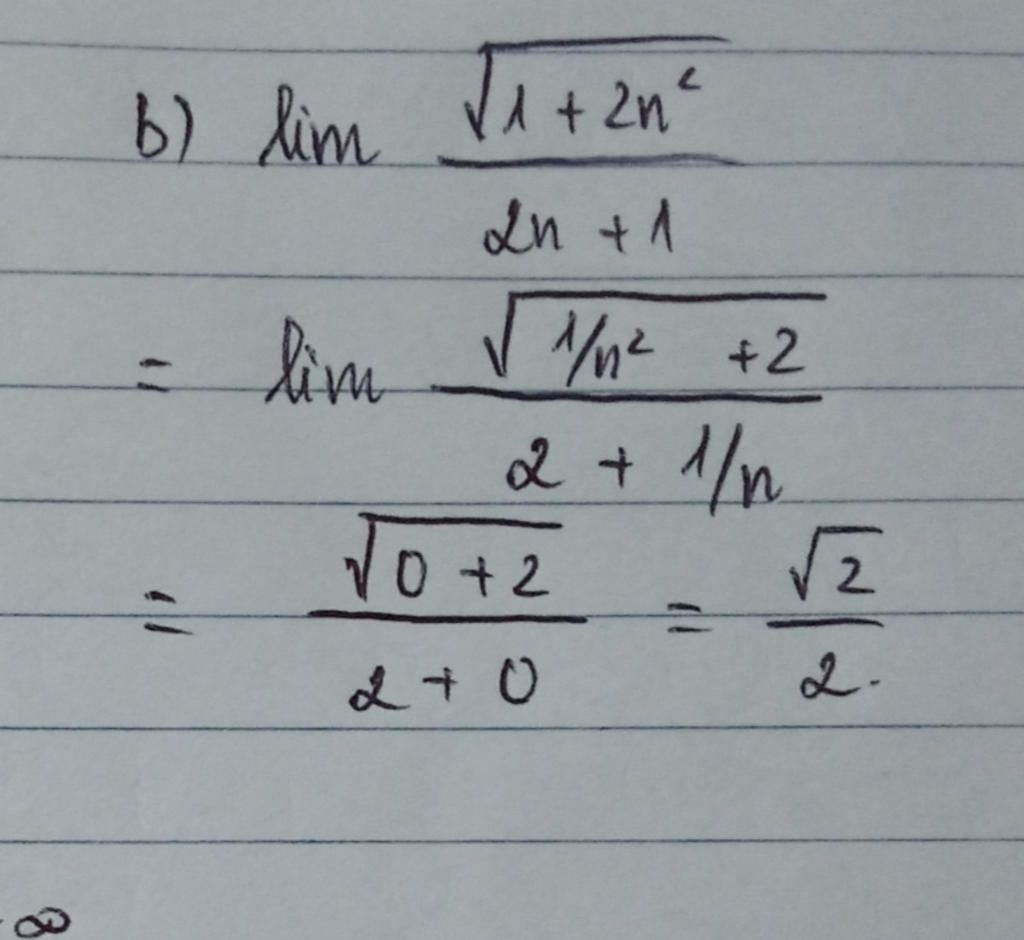 b) lim √(1 + 2n²) / (2n + 1)
= lim √(1/n² + 2) / (2 + 1/n)
= √(0 + 2) / (2 + 0) = √2 / 2.
∞